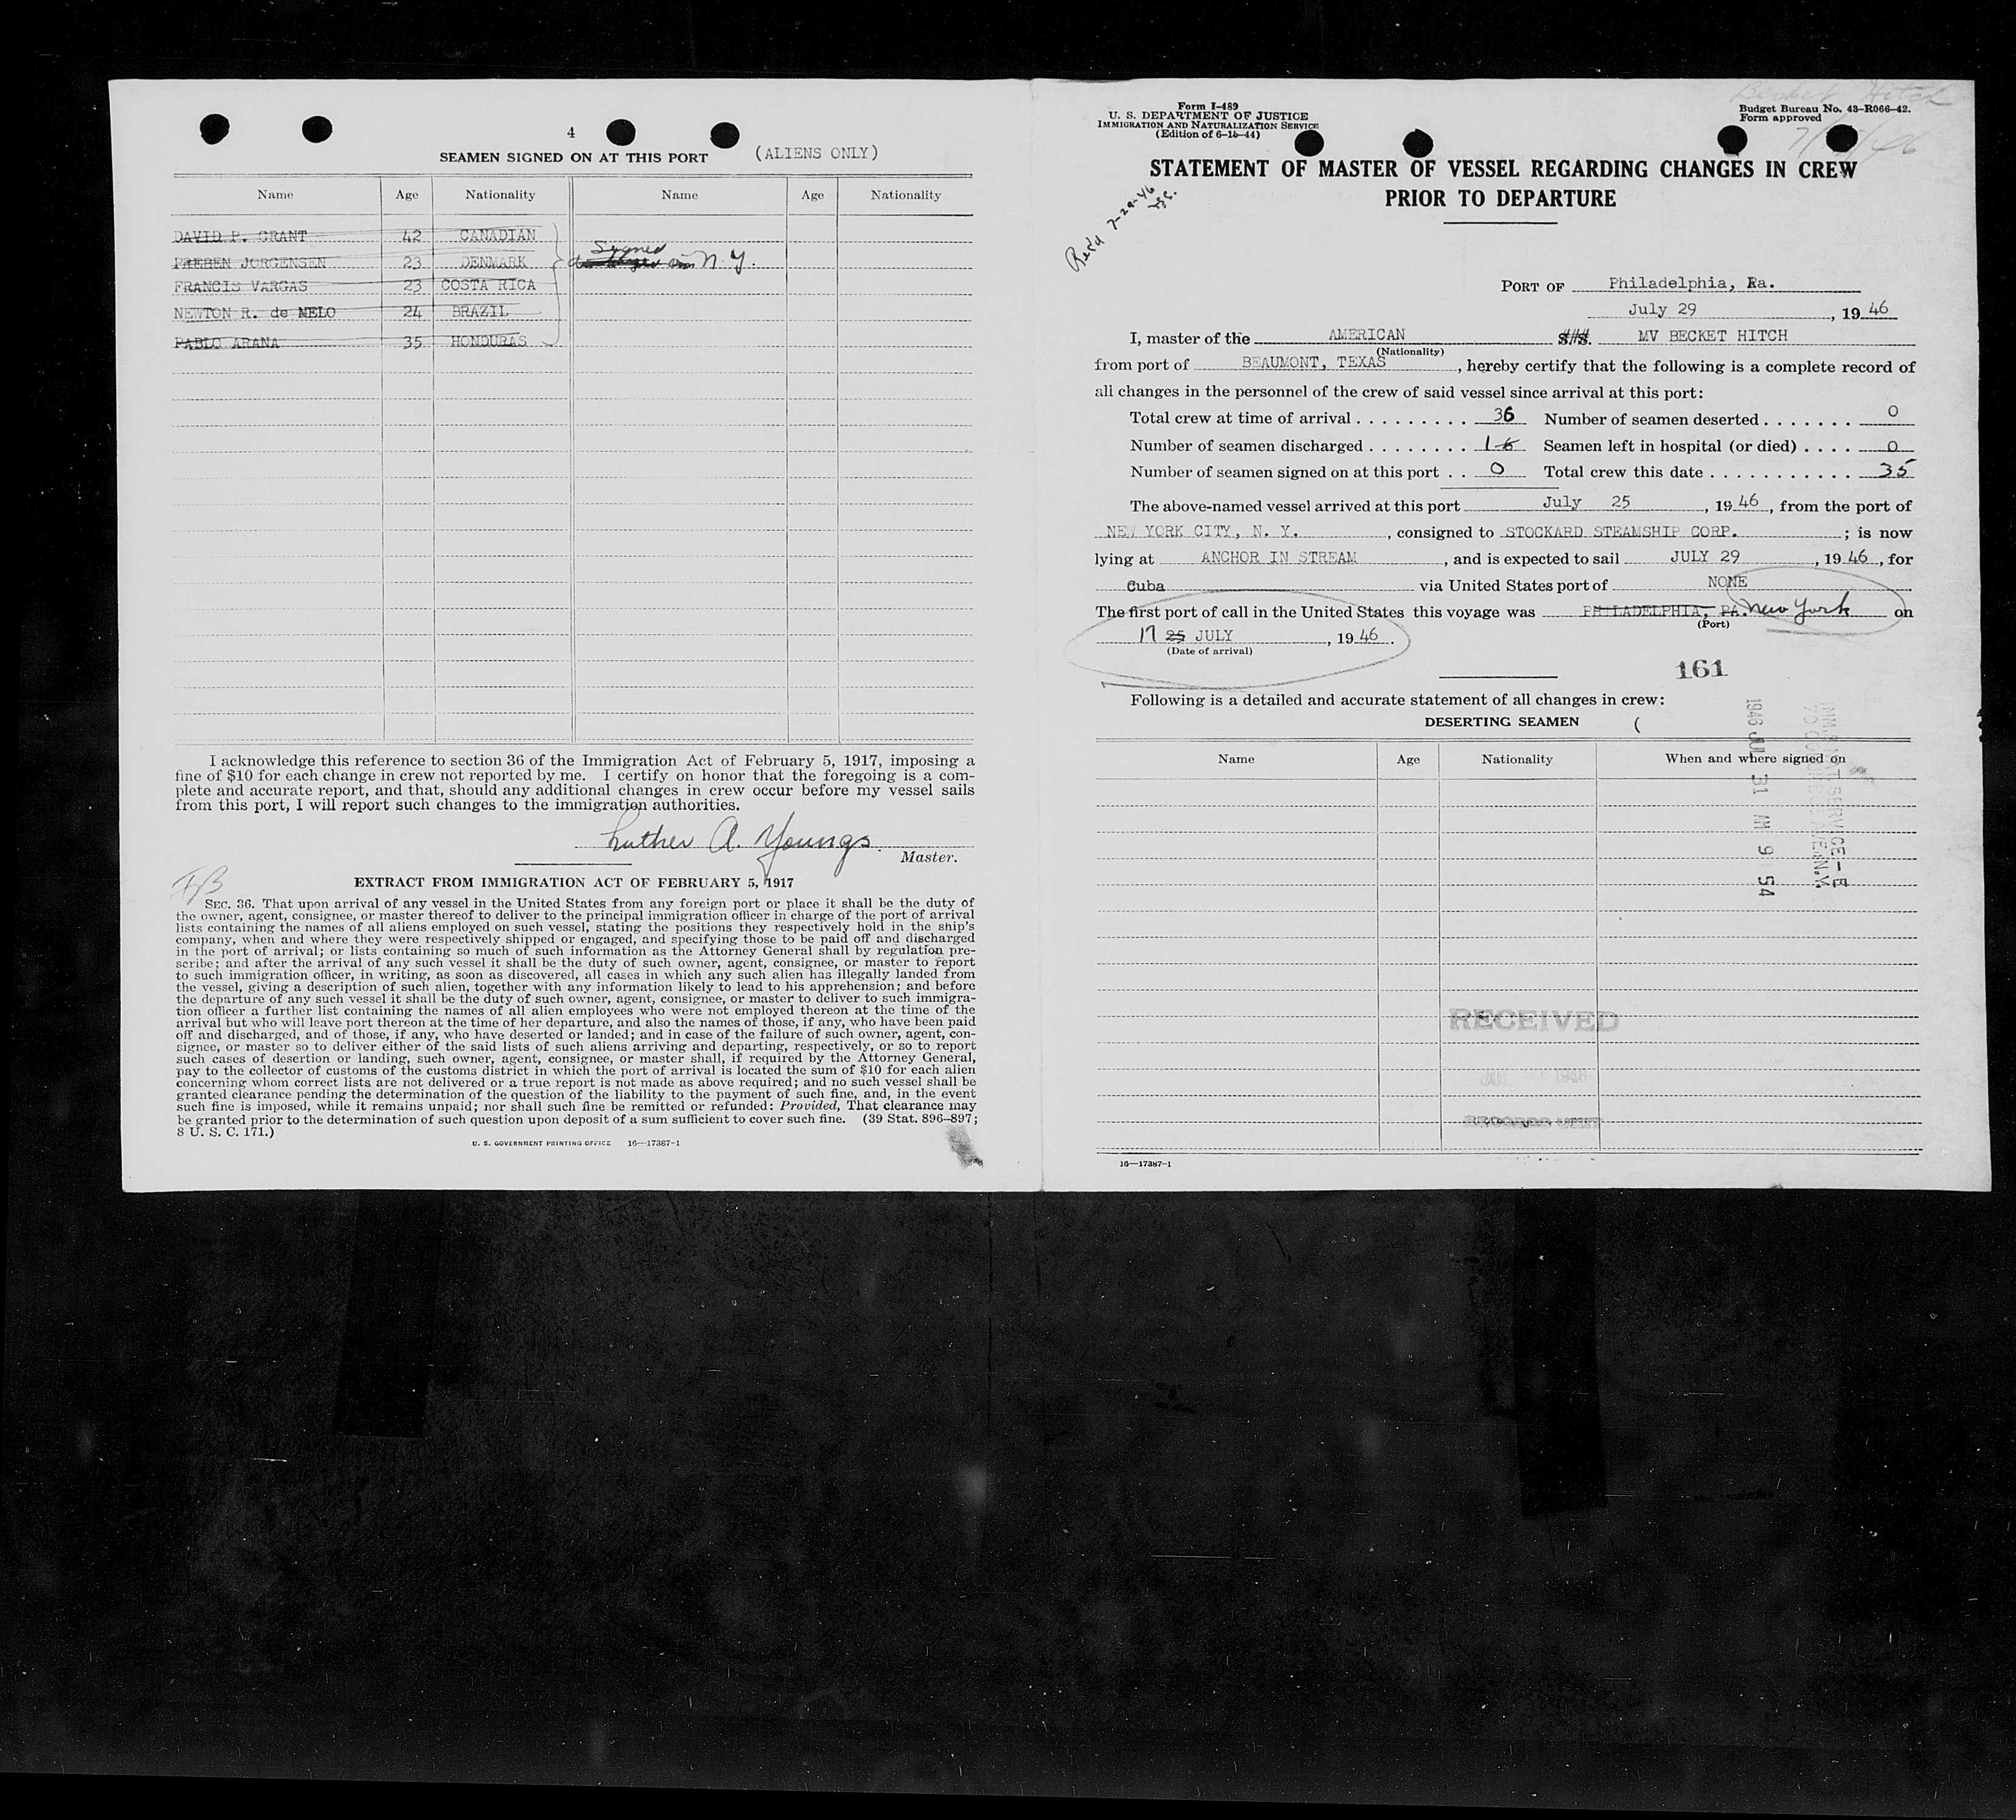 4
SEAMEN SIGNED ON AT THIS PORT (ALIENS ONLY)
Name Age Nationality Name Age Nationality
DAVID P. GRANT 42 CANADIAN
PREBEN JORGENSEN 23 DENMARK Signed in N.Y.
FRANCIS VARGAS 23 COSTA RICA
NEWTON R. de MELO 24 BRAZIL
PABLO ARANA 35 HONDURAS
I acknowledge this reference to section 36 of the Immigration Act of February 5, 1917, imposing a
fine of $10 for each change in crew not reported by me. I certify on honor that the foregoing is a com-
plete and accurate report, and that, should any additional changes in crew occur before my vessel sails
from this port, I will report such changes to the immigration authorities.
Luther A. Youngs
Master.
EXTRACT FROM IMMIGRATION ACT OF FEBRUARY 5, 1917
SEC. 36. That upon arrival of any vessel in the United States from any foreign port or place it shall be the duty of
the owner, agent, consignee, or master thereof to deliver to the principal immigration officer in charge of the port of arrival
lists containing the names of all aliens employed on such vessel, stating the positions they respectively hold in the ship's
company, when and where they were respectively shipped or engaged, and specifying those to be paid off and discharged
in the port of arrival; or lists containing so much of such information as the Attorney General shall by regulation pre-
scribe; and after the arrival of any such vessel it shall be the duty of such owner, agent, consignee, or master to report
to such immigration officer, in writing, as soon as discovered, all cases in which any such alien has illegally landed from
the vessel, giving a description of such alien, together with any information likely to lead to his apprehension; and before
the departure of any such vessel it shall be the duty of such owner, agent, consignee, or master to deliver to such immigra-
tion officer a further list containing the names of all alien employees who were not employed thereon at the time of the
arrival but who will leave port thereon at the time of her departure, and also the names of those, if any, who have been paid
off and discharged, and of those, if any, who have deserted or landed; and in case of the failure of such owner, agent, con-
signee, or master so to deliver either of the said lists of such aliens arriving and departing, respectively, or so to report
such cases of desertion or landing, such owner, agent, consignee, or master shall, if required by the Attorney General,
pay to the collector of customs of the customs district in which the port of arrival is located the sum of $10 for each alien
concerning whom correct lists are not delivered or a true report is not made as above required; and no such vessel shall be
granted clearance pending the determination of the question of the liability to the payment of such fine, and, in the event
such fine is imposed, while it remains unpaid; nor shall such fine be remitted or refunded: Provided, That clearance may
be granted prior to the determination of such question upon deposit of a sum sufficient to cover such fine. (39 Stat. 896–897;
8 U. S. C. 171.)
U. S. GOVERNMENT PRINTING OFFICE 16—17387-1
Becket Hitch
Form I-489
U. S. DEPARTMENT OF JUSTICE
IMMIGRATION AND NATURALIZATION SERVICE
(Edition of 6-15-44)
Budget Bureau No. 43-R066-42.
Form approved
STATEMENT OF MASTER OF VESSEL REGARDING CHANGES IN CREW
PRIOR TO DEPARTURE
Rec'd 7-29-46
PORT OF Philadelphia, Pa.
July 29, 1946
I, master of the AMERICAN S.S. MV BECKET HITCH
(Nationality)
from port of BEAUMONT, TEXAS, hereby certify that the following is a complete record of
all changes in the personnel of the crew of said vessel since arrival at this port:
Total crew at time of arrival . . . . . . . . . . 36 Number of seamen deserted . . . . . . . 0
Number of seamen discharged . . . . . . . . 1 6 Seamen left in hospital (or died) . . . . 0
Number of seamen signed on at this port . . 0 Total crew this date . . . . . . . . . . . . 35
The above-named vessel arrived at this port July 25, 1946, from the port of
NEW YORK CITY, N. Y., consigned to STOCKARD STEAMSHIP CORP.; is now
lying at ANCHOR IN STREAM, and is expected to sail JULY 29, 1946, for
Cuba via United States port of NONE
The first port of call in the United States this voyage was PHILADELPHIA, PA. New York on
(Port)
17 25 JULY, 1946.
(Date of arrival)
161
Following is a detailed and accurate statement of all changes in crew:
DESERTING SEAMEN (
Name Age Nationality When and where signed on
1946 JUL 31 AM 9 54
RECEIVED
RECORDS UNIT
16—17387-1